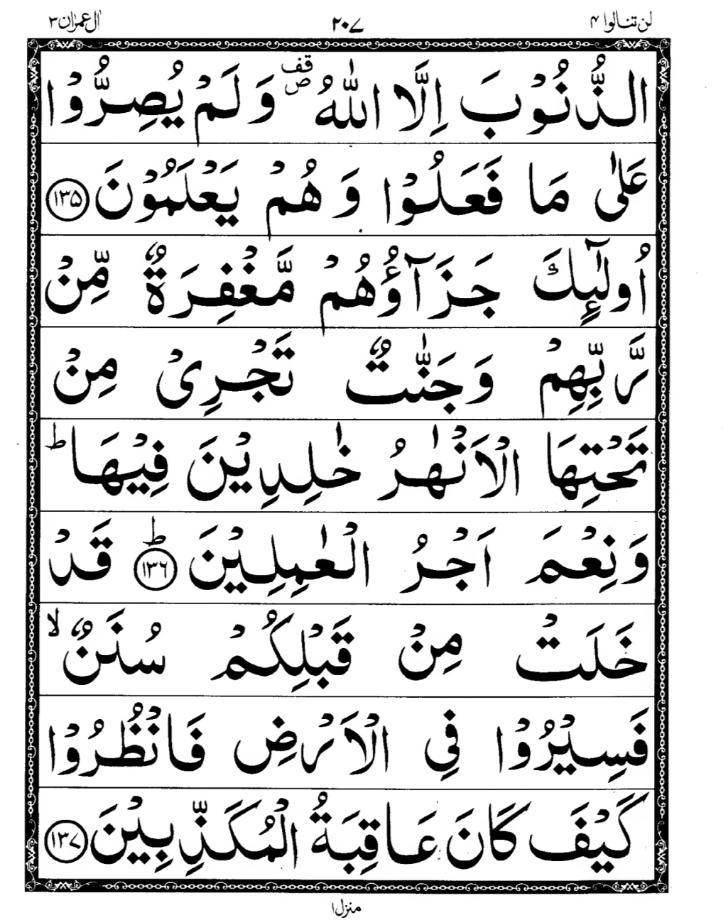 لن تنالوا ۴ ۲۰۷ اٰل عمرٰن ۳
الذُّنُوۡبَ اِلَّا اللّٰهُ ۪ قف ص وَ لَمۡ يُصِرُّوۡا
عَلٰى مَا فَعَلُوۡا وَ هُمۡ يَعۡلَمُوۡنَ ﴿۱۳۵﴾
اُولٰٓئِكَ جَزَآؤُهُمۡ مَّغۡفِرَةٌ مِّنۡ
رَّبِّهِمۡ وَ جَنّٰتٌ تَجۡرِىۡ مِنۡ
تَحۡتِهَا الۡاَنۡهٰرُ خٰلِدِيۡنَ فِيۡهَا ؕ
وَ نِعۡمَ اَجۡرُ الۡعٰمِلِيۡنَ ؕ ﴿۱۳۶﴾ قَدۡ
خَلَتۡ مِنۡ قَبۡلِكُمۡ سُنَنٌ ۙ
فَسِيۡرُوۡا فِى الۡاَرۡضِ فَانۡظُرُوۡا
كَيۡفَ كَانَ عَاقِبَةُ الۡمُكَذِّبِيۡنَ ﴿۱۳۷﴾
منزل ۱